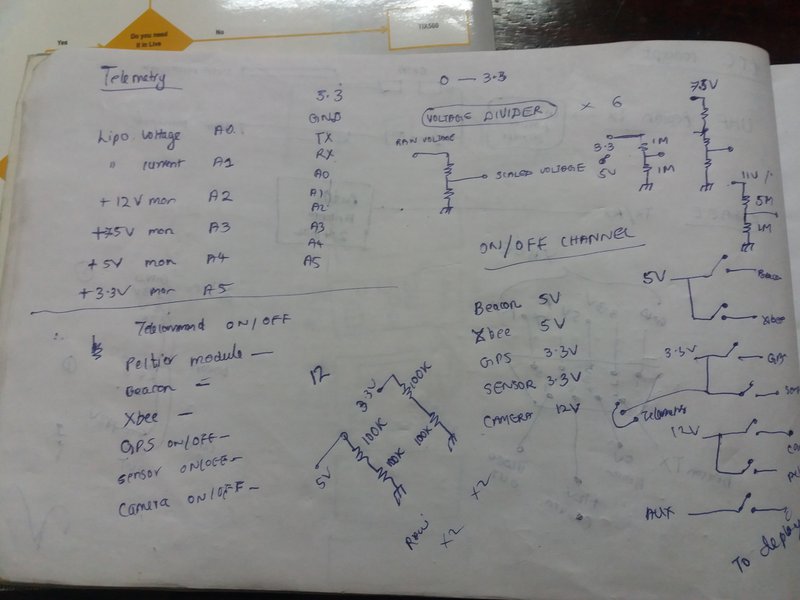 Yes
Do you need
it in Live
No
Telemetry
3.3
GND
TX
RX
A0
A1
A2
A3
A4
A5
Lipo. Voltage A0
" current A1
+12V mon A2
+7.5V mon A3
+5V mon A4
+3.3V mon A5
Telecommand ON/OFF
Peltier module —
Beacon =
Xbee —
GPS ON/OFF -
Sensor ON/OFF -
Camera ON/OFF -
12
0 — 3.3
VOLTAGE DIVIDER × 6
RAW VOLTAGE
SCALED VOLTAGE
3.3
5V
1M
1M
7.5V
11V
5M
1M
ON/OFF CHANNEL
Beacon 5V
Xbee 5V
GPS 3.3V
SENSOR 3.3V
CAMERA 12V
5V
Beacon
Xbee
3.3V
GPS
Telemetry
12V
AUX
To deploy
3.3V
100K
5V
100K
100K
Row
×2
×2